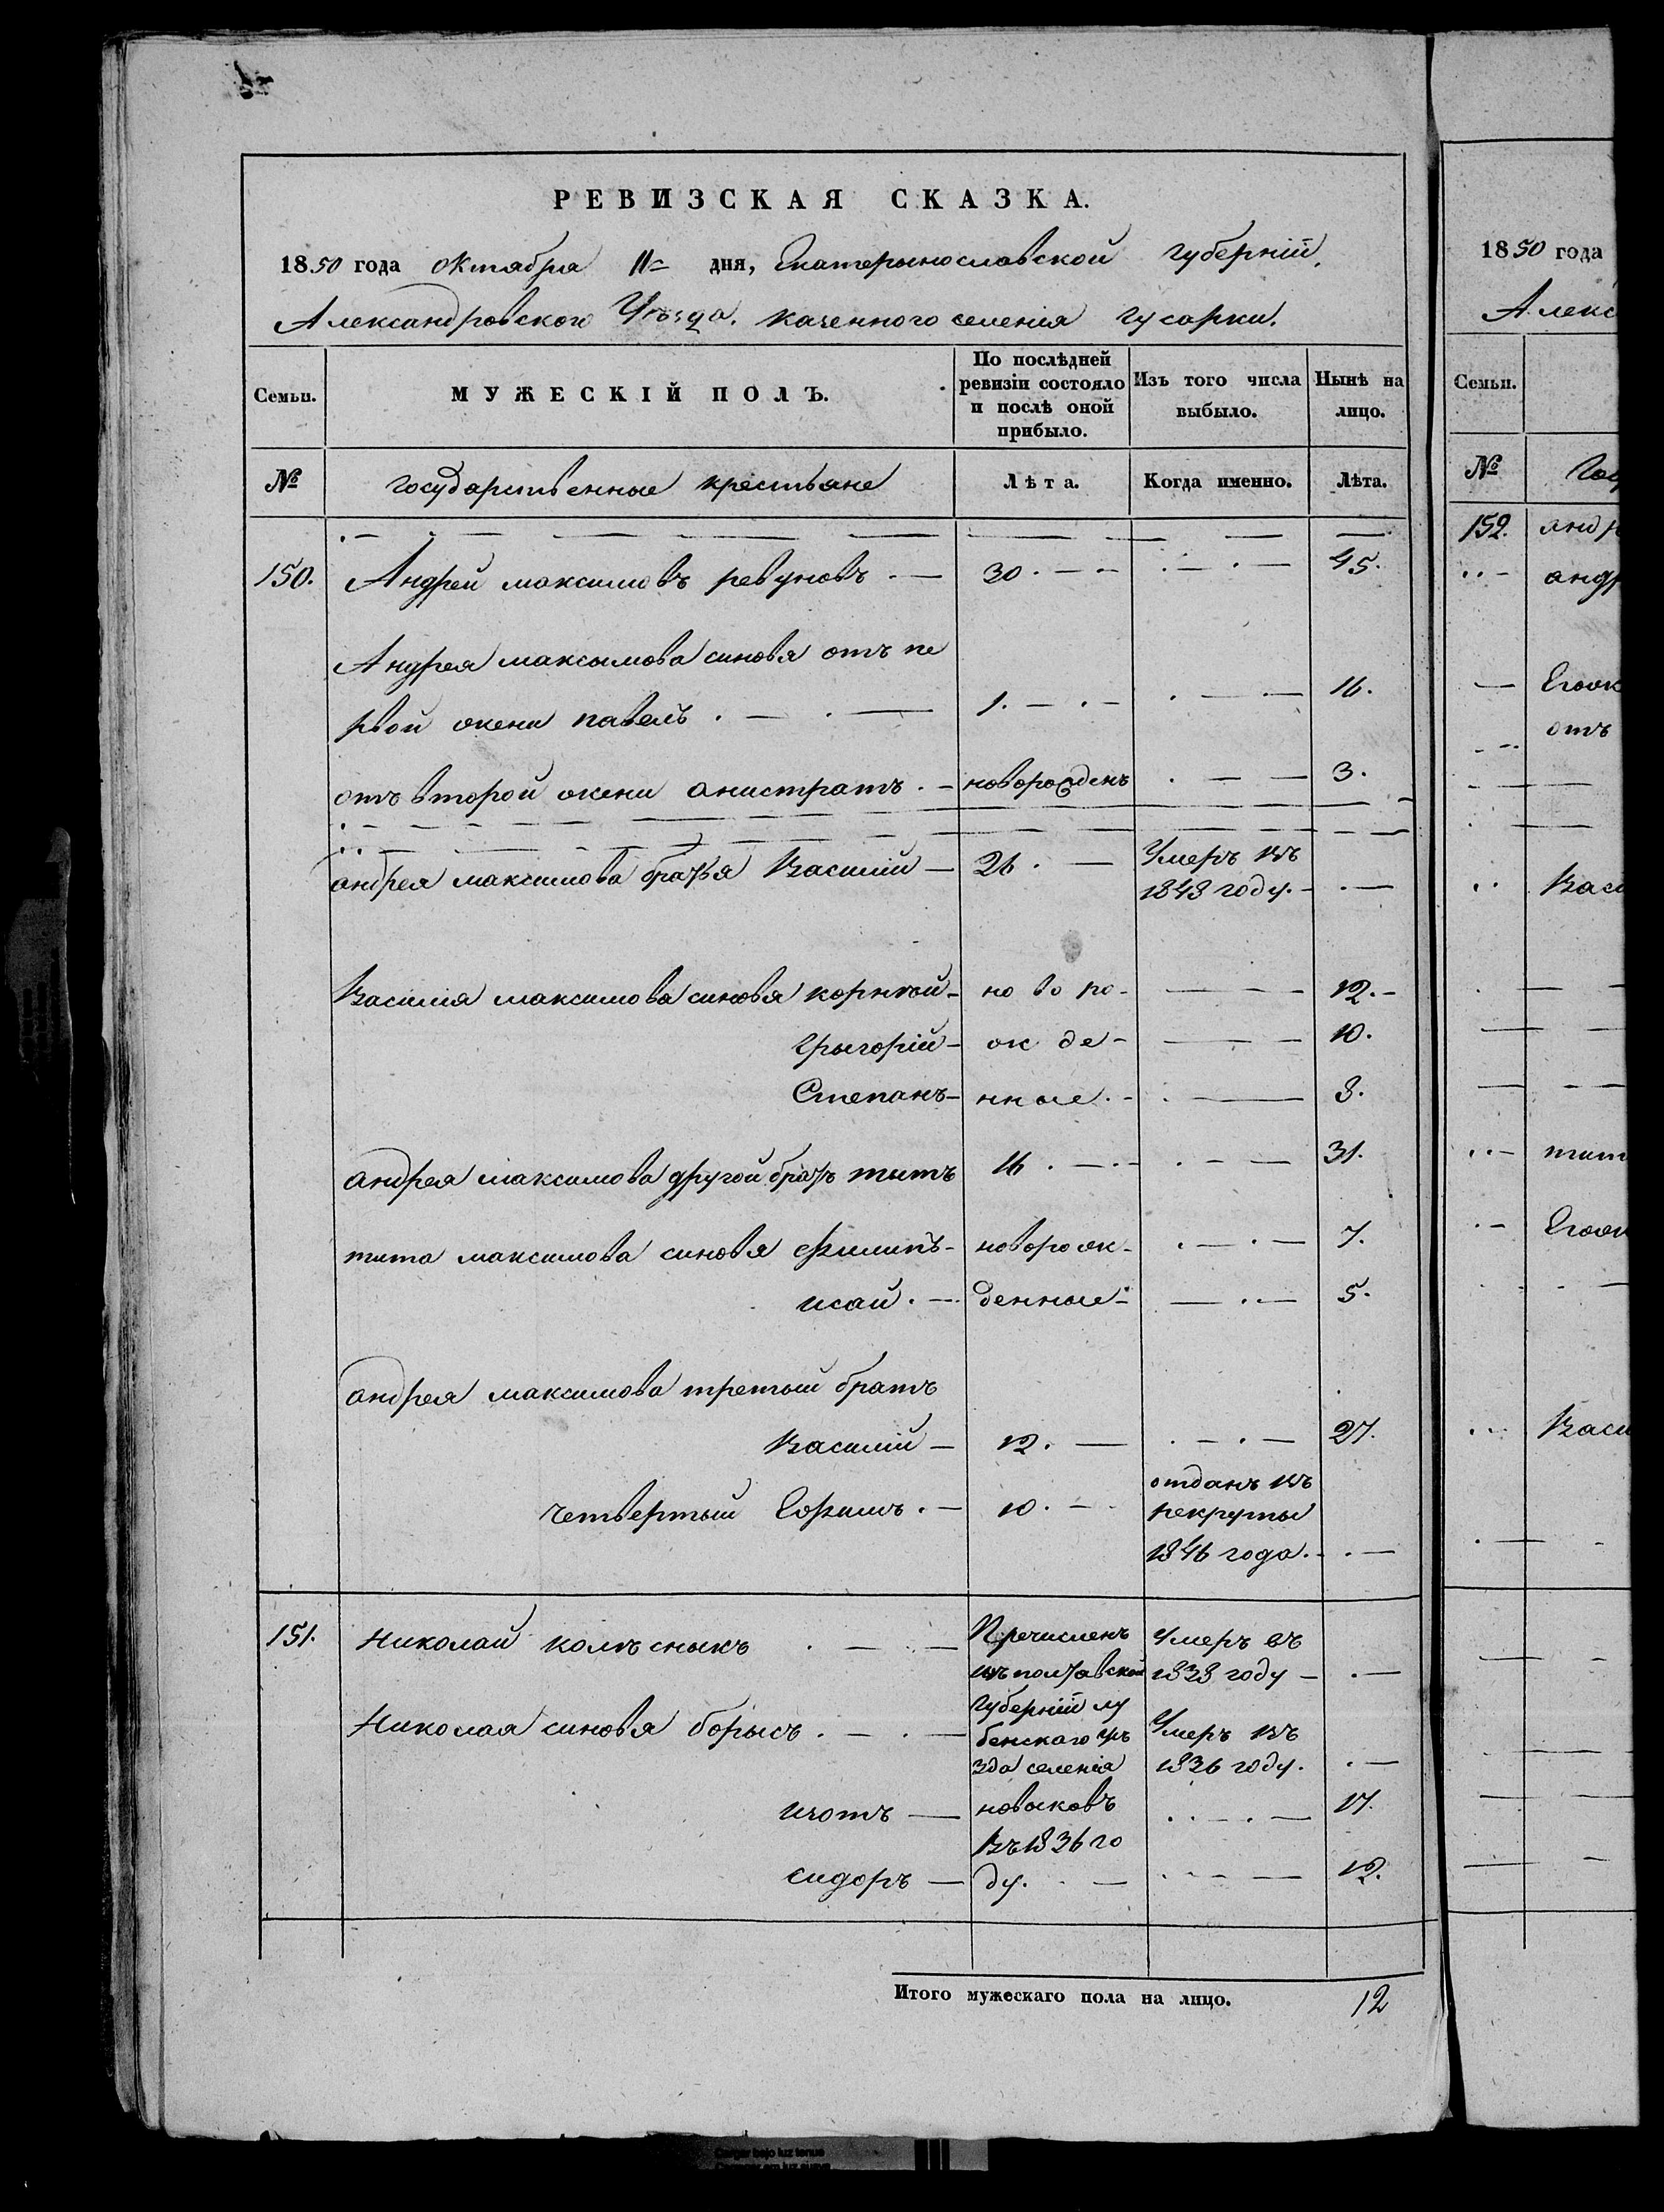 РЕВИЗСКАЯ СКАЗКА.
1850 года октября 11 дня, Екатерынославской губерніи,
Александровского Уѣзда. казенного селенія гусарки.
Семьи. МУЖЕСКІЙ ПОЛЪ. По послѣдней ревизіи состояло и послѣ оной прибыло. Изъ того числа выбыло. Нынѣ на лицо.
№ государственные крестьяне Лѣта. Когда именно. Лѣта.
150. Андрей максимовъ ревуновъ 30. 45.
Андрея максымова синовя отъ пе
рвой жени павелъ 1. 16.
отъ второй жени анистратъ новорожденъ 3.
андрея максимова братья Василий 26. Умеръ въ
1848 году.
Василия максимова синовя корнѣй новоро- 12.
Грыгорій жде- 10.
Степанъ нные. 8.
андрея максимова другой братъ титъ 16. 31.
тита максимова синовя филипъ новорож- 7.
исай. денные 5.
андрея максимова третый братъ
Василій 12. 27.
четвертый Ефимъ. 10. отданъ въ
рекруты
1846 года.
151. Николай колѣсныкъ Пречисленъ Умеръ въ
изъ полтавской 1838 году
Николая синовя борысъ губерніи лу
бенскаго уѣ Умеръ въ
зда селенія 1836 году.
изотъ новаковъ 17.
Въ 1836 го
сидоръ ду. 12.
Итого мужескаго пола на лицо. 12
1850 года
Алекс
Семьи.
№ Гос
152. андр
андр
Егоже
отъ
Васи
тит
Егож
Васи